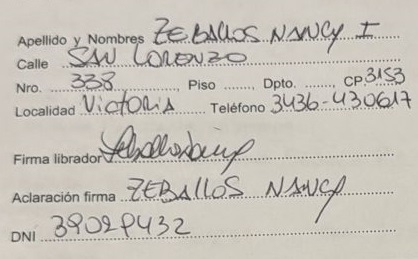 Apellido y Nombres ZEBALLOS NANCY I
Calle SAN LORENZO
Nro. 338 Piso ......., Dpto. ......., CP 3153
Localidad Victoria Teléfono 3436-430617
Firma librador
Aclaración firma ZEBALLOS NANCY
DNI